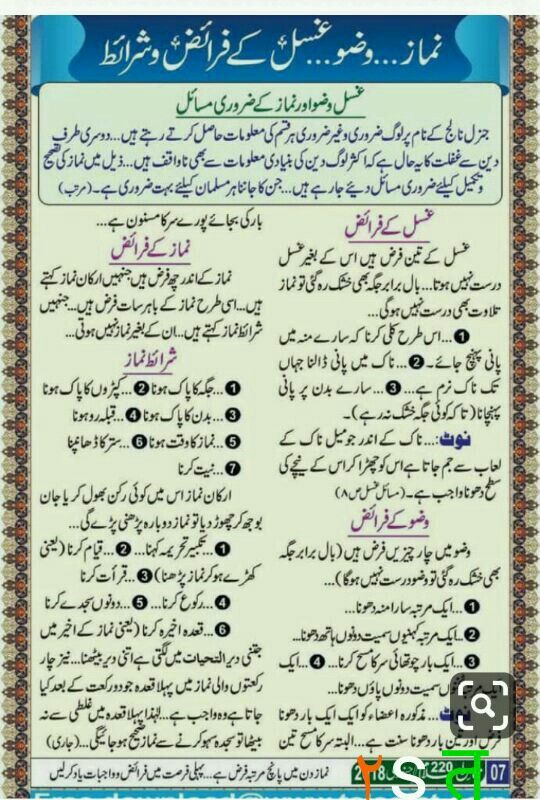 نماز...وضو...غسل کے فرائض و شرائط
غسل وضو اور نماز کے ضروری مسائل
جنرل نالج کے نام پر لوگ ضروری وغیر ضروری ہر قسم کی معلومات حاصل کرتے رہتے ہیں...دوسری طرف
دین سے غفلت کا یہ حال ہے کہ اکثر لوگ دین کی بنیادی معلومات سے بھی ناواقف ہیں...ذیل میں نماز کی تصحیح
و تکمیل کیلئے ضروری مسائل دیئے جا رہے ہیں...جن کا جاننا ہر مسلمان کیلئے بہت ضروری ہے۔(مرتب)
غسل کے فرائض
غسل کے تین فرض ہیں اس کے بغیر غسل
درست نہیں ہوتا...بال برابر جگہ بھی خشک رہ گئی تو نماز
تلاوت بھی درست نہیں ہوگی...
❶...اس طرح کلی کرنا کہ سارے منہ میں
پانی پہنچ جائے۔❷...ناک میں پانی ڈالنا جہاں
تک ناک نرم ہے...❸...سارے بدن پر پانی
پہنچانا (تاکہ کوئی جگہ خشک نہ رہے)۔
نوٹ:...ناک کے اندر جو میل ناک کے
لعاب سے جم جاتا ہے اس کو چھڑا کر اس کے نیچے کی
سطح دھونا واجب ہے۔(مسائل غسل ص۸)
وضو کے فرائض
وضو میں چار چیزیں فرض ہیں (بال برابر جگہ
بھی خشک رہ گئی تو وضو درست نہیں ہوگا)...
❶...ایک مرتبہ سارا منہ دھونا...
❷...ایک مرتبہ کہنیوں سمیت دونوں ہاتھ دھونا...
❸...ایک بار چوتھائی سر کا مسح کرنا...❹...ایک
سمیت دونوں پاؤں دھونا...
نوٹ...مذکورہ اعضاء کو ایک ایک بار دھونا
فرض اور تین بار دھونا سنت ہے...البتہ سر کا مسح تین
بار کی بجائے پورے سر کا مسنون ہے...
نماز کے فرائض
نماز کے اندر چھ فرض ہیں جنہیں ارکان نماز کہتے
ہیں...اسی طرح نماز کے باہر سات فرض ہیں...جنہیں
شرائط نماز کہتے ہیں...ان کے بغیر نماز نہیں ہوتی...
شرائط نماز
❶...جگہ کا پاک ہونا ❷...کپڑوں کا پاک ہونا
❸...بدن کا پاک ہونا ❹...قبلہ رو ہونا
❺...نماز کا وقت ہونا ❻...ستر کا ڈھانپنا
❼...نیت کرنا
ارکان نماز اس میں کوئی رکن بھول کر یا جان
بوجھ کر چھوڑ دیا تو نماز دوبارہ پڑھنی پڑے گی...
❶...تکبیر تحریمہ کہنا...❷...قیام کرنا (یعنی
کھڑے ہو کر نماز پڑھنا) ❸...قرأت کرنا
❹...رکوع کرنا...❺...دونوں سجدے کرنا
❻...قعدہ اخیرہ کرنا (یعنی نماز کے اخیر میں
جتنی دیر التحیات میں لگتی ہے اتنی دیر بیٹھنا...نیز چار
رکعتوں والی نماز میں پہلا قعدہ جو دو رکعت کے بعد کیا
جاتا ہے وہ واجب ہے...لہٰذا پہلا قعدہ میں غلطی سے نہ
بیٹھا تو سجدہ سہو کرنے سے نماز صحیح ہو جائیگی...(جاری)
07
220
2018
نماز دن میں پانچ مرتبہ فرض ہے...پہلی فرصت میں فرائض و واجبات یاد کرلیں